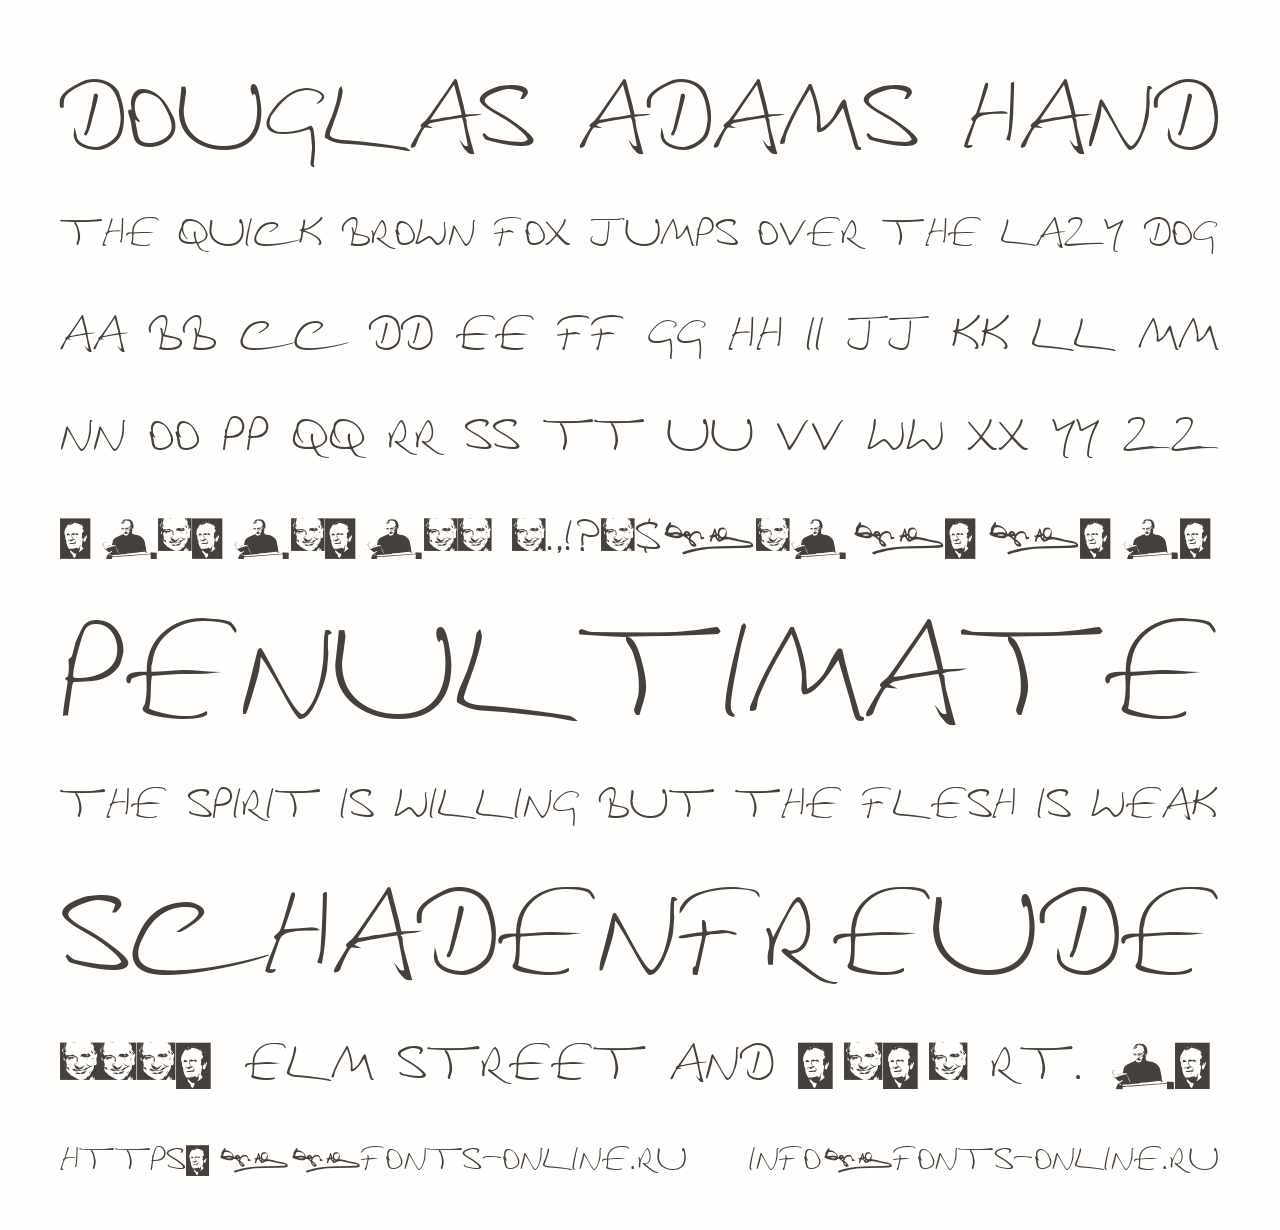 DOUGLAS ADAMS HAND
THE QUICK BROWN FOX JUMPS OVER THE LAZY DOG
AA BB CC DD EE FF GG HH II JJ KK LL MM
NN OO PP QQ RR SS TT UU VV WW XX YY ZZ
.,!?$
PENULTIMATE
THE SPIRIT IS WILLING BUT THE FLESH IS WEAK
SCHADENFREUDE
ELM STREET AND RT.
HTTPS FONTS-ONLINE.RU INFO FONTS-ONLINE.RU